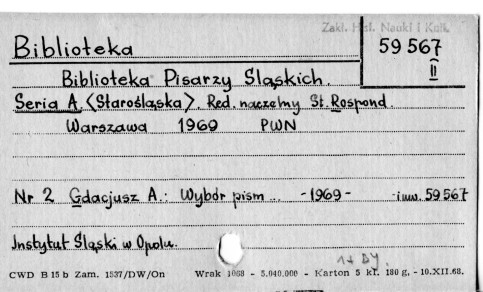 Zakł. Hist. Nauki i Kult.
Biblioteka 59 567
II
Biblioteka Pisarzy Śląskich.
Seria A. <Starośląska>. Red. naczelny St. Rospond.
Warszawa 1969 PWN
Nr 2 Gdacjusz A.: Wybór pism... -1969- inw. 59567
Instytut Śląski w Opolu.
CWD B 15 b Zam. 1837/DW/On Wrak 1068 - 5.040.000 - Karton 5 kl. 180 g. - 10.XII.68.